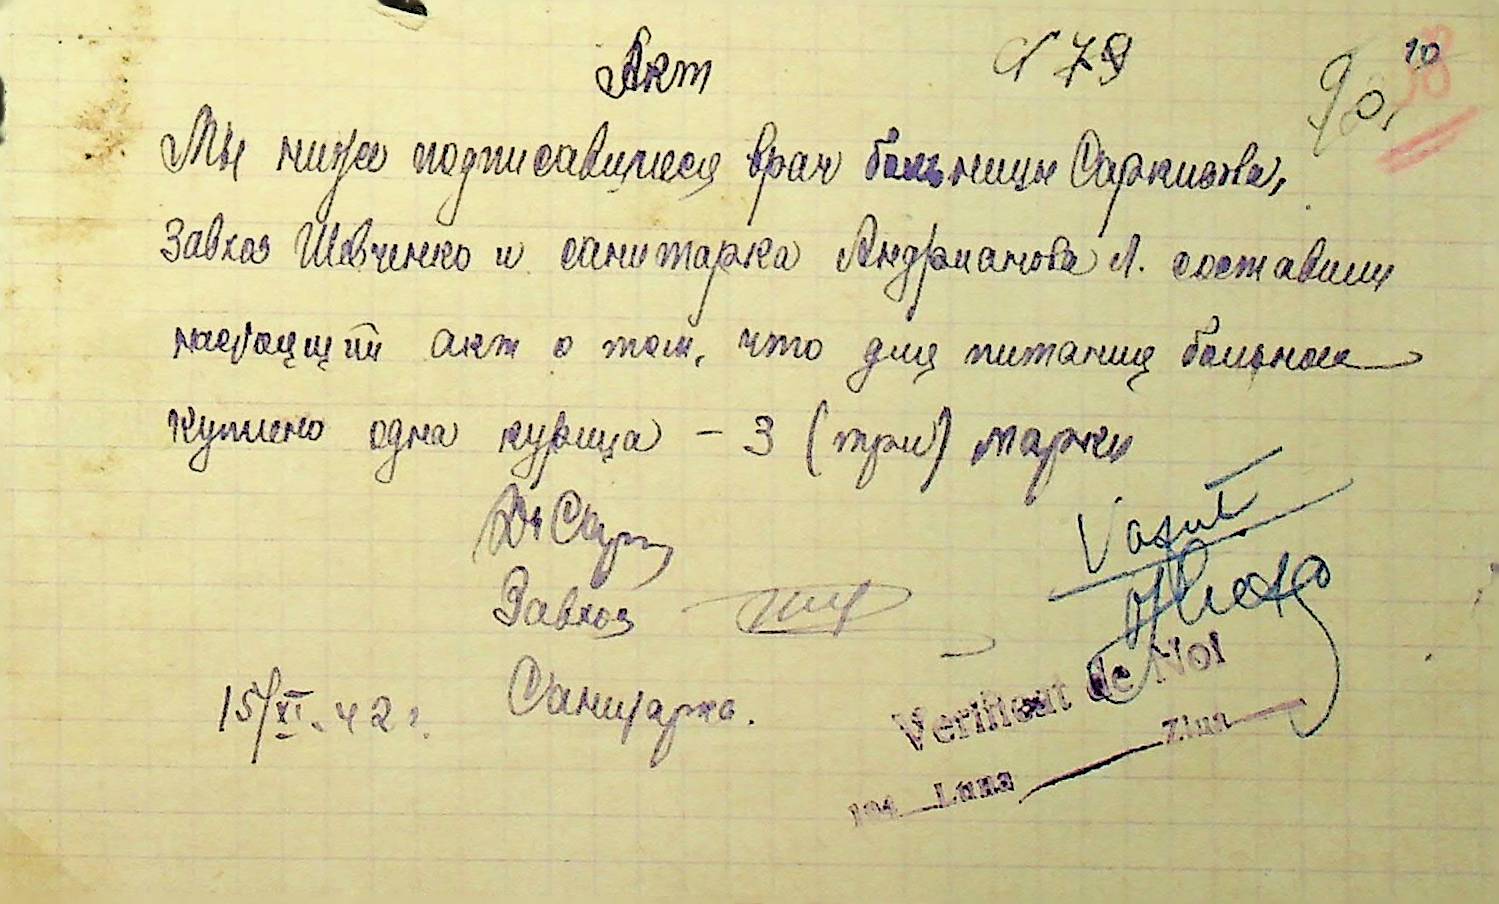 Акт № 79
Мы ниже подписавшиеся врач больницы Саркисова,
Завхоз Шевченко и санитарка Андрианова Л. составили
настоящий акт о том, что для питания больном
куплено одна курица – 3 (три) марки
Dr Сарк
Завхоз
Санитарка.
15/XI. 42 г.
Vazut
Verificat de Noi
194 Luna Ziua